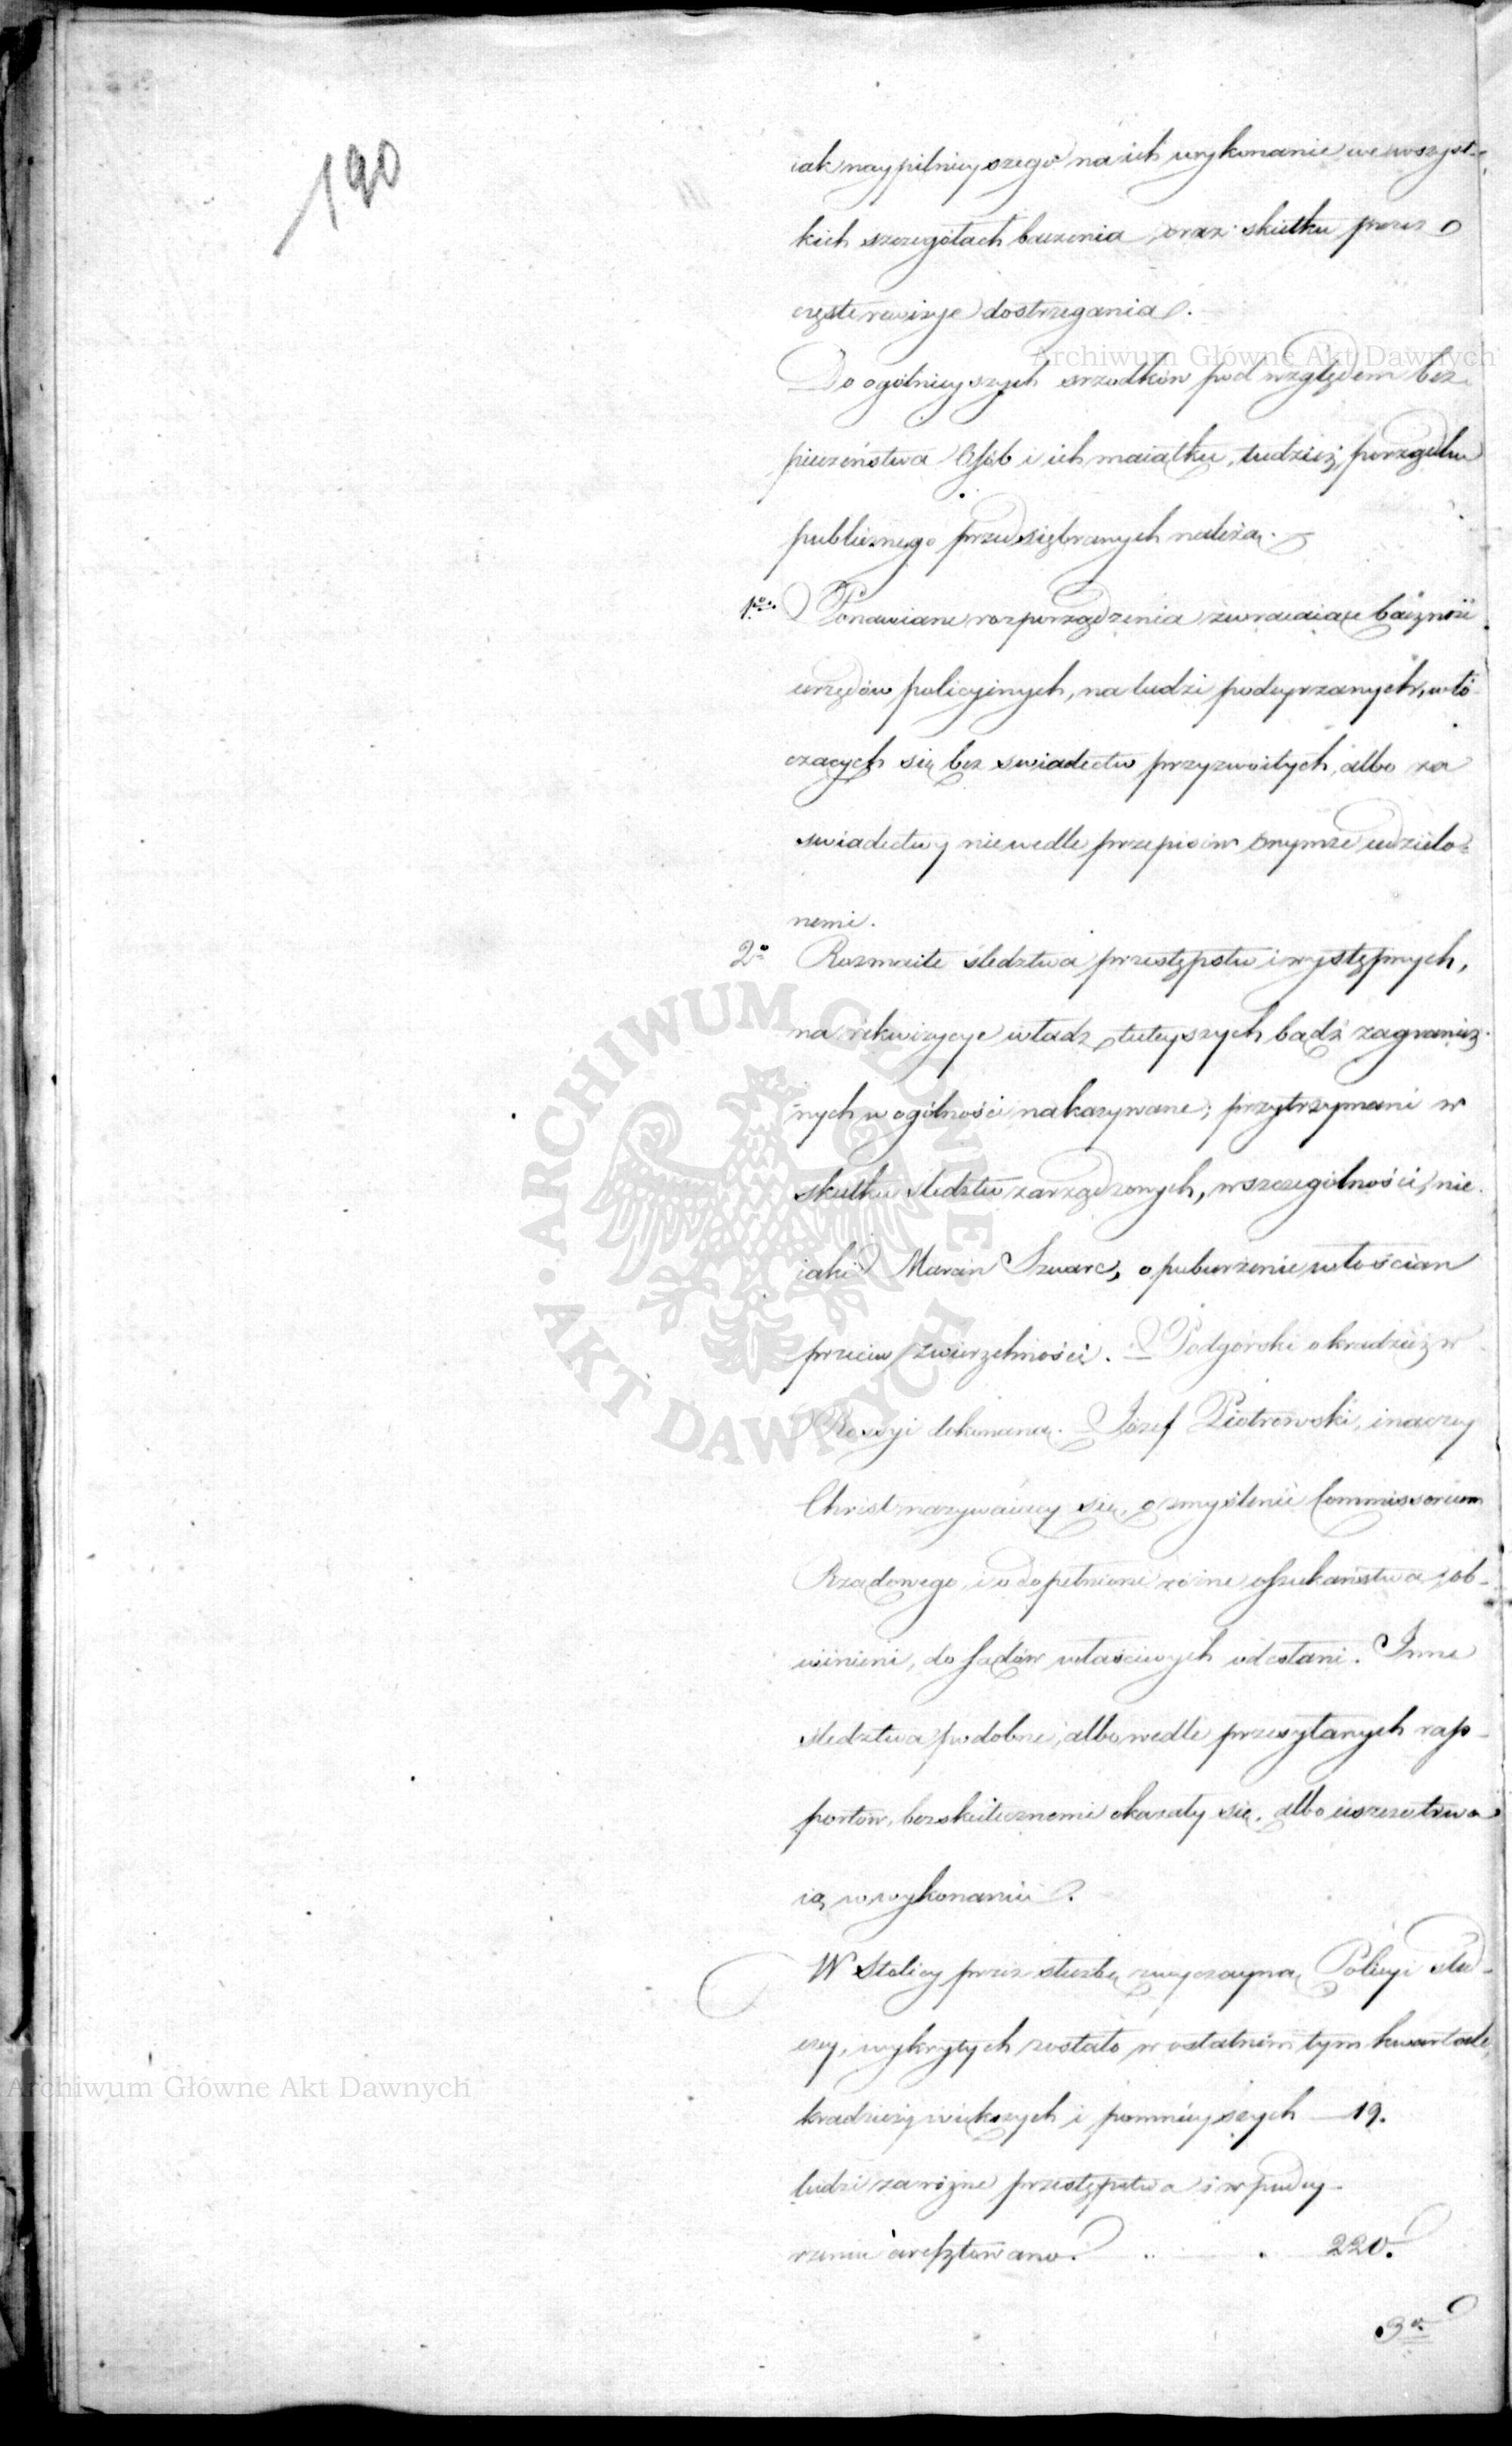 190
iak naypilnieyszego na ich wykonanie we wszyst-
kich szczegółach baczenia, oraz skutku przez
częste rewizye dostrzegania.
Archiwum Główne Akt Dawnych
Do ogólnieyszych srzodków pod względem bez-
pieczeństwa Osób i ich maiątku, tudzież porządku
publicznego przedsiębranych należą.
1o. Ponawiane rozporządzenia zwracaiące baczność
urzędów policyjnych, na ludzi podeyrzanych, włó-
czących się bez swiadectw przyzwoitych, albo za
swiadectwy niewedle przepisów onymże udzielo-
nemi.
2o Rozmaite sledztwa przestępstw i występnych,
na rekwizycye władz tuteyszych bądź zagranicz-
nych w ogólności nakazywane; przytrzymani w
skutku sledztw zarządzonych, w szczególności, nie-
iaki Marcin Szwarc, o puburzenie włościan
przeciw zwierzchności. Podgórski o kradzież w
Rossyi dokonaną. Józef Piotrowski, inaczey
Christ nazywaiący się, o zmyślenie Commissorium
Rządowego, i o dopełnione różne oszukaństwa, ob-
winieni, do sądów właściwych odesłani. Inne
sledztwa podobne, albo wedle przesyłanych rap-
portów, bezskutecznemi okazały się, albo ieszcze trwa-
ią w wykonaniu.
W Stolicy przez służbę zwyczayną Policyi
wykrytych zostało w ostatnim tym kwartale,
Archiwum Główne Akt Dawnych
kradzieży większych i pomnieyszych — 19.
ludzi za różne przestępstwa i w podey-
rzeniu aresztowano. . . 220.
3o
ARCHIWUM GŁÓWNE • AKT DAWNYCH •